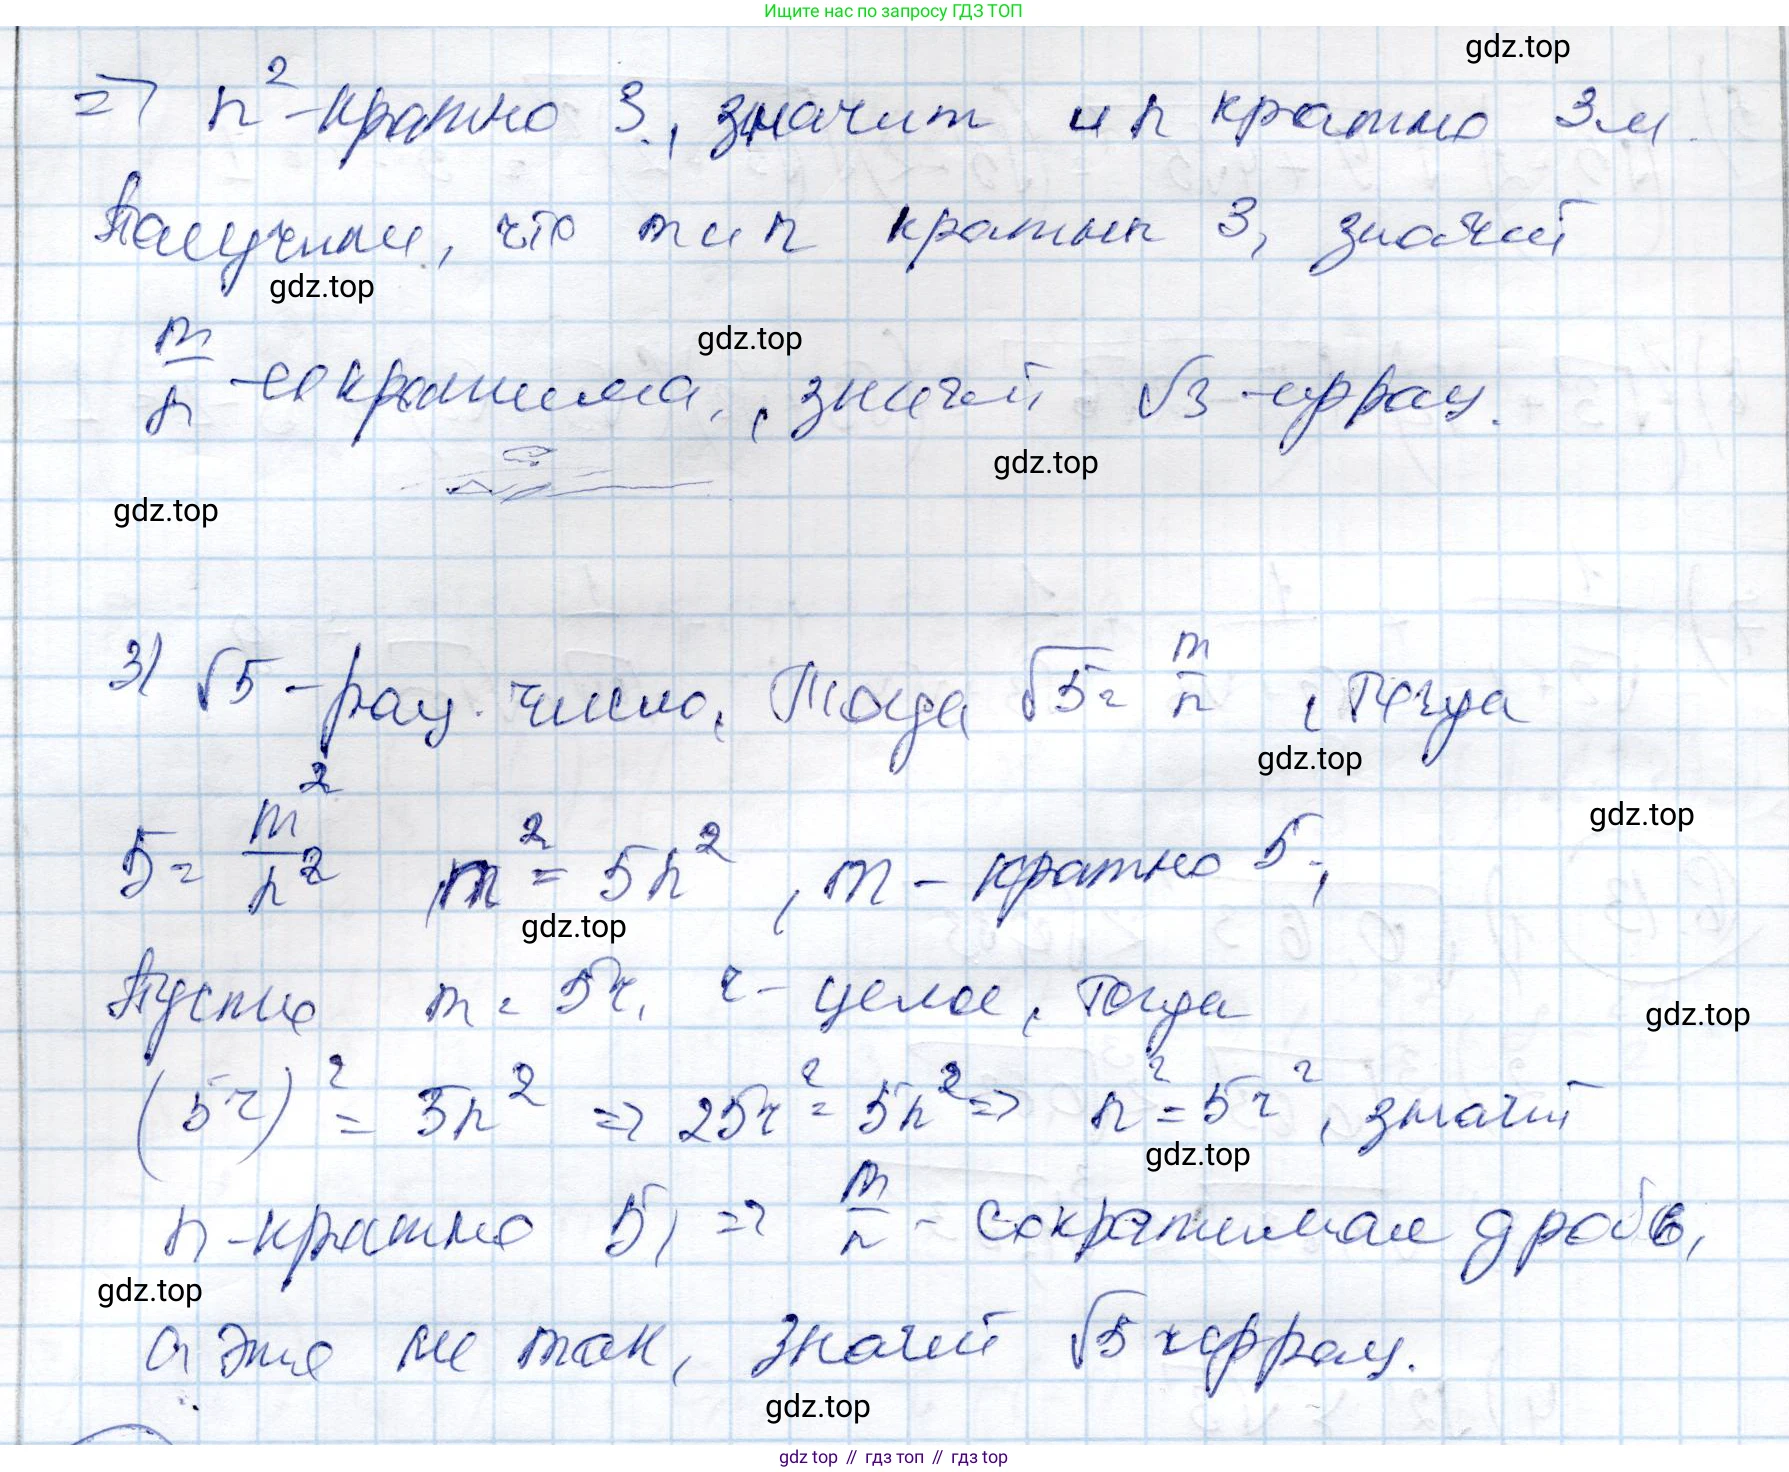 Ищите нас по запросу ГДЗ ТОП
gdz.top
=> n² - кратно 3, значит и n кратно 3 и
Получили, что m и n кратны 3, значит
gdz.top
m/n - сократима, значит √3 - иррац.
gdz.top
gdz.top
gdz.top
3) √5 - рац. число, Тогда √5 = m/n, Тогда
gdz.top
gdz.top
5 = m²/n², m² = 5n², m - кратно 5,
gdz.top
Пусть m = 5r, r - целое, тогда
gdz.top
(5r)² = 5n² => 25r² = 5n² => n² = 5r², значит
gdz.top
n - кратно 5, => m/n - сократимая дробь,
gdz.top
а это не так, значит √5 иррац.
gdz.top
gdz.top // гдз топ // гдз top